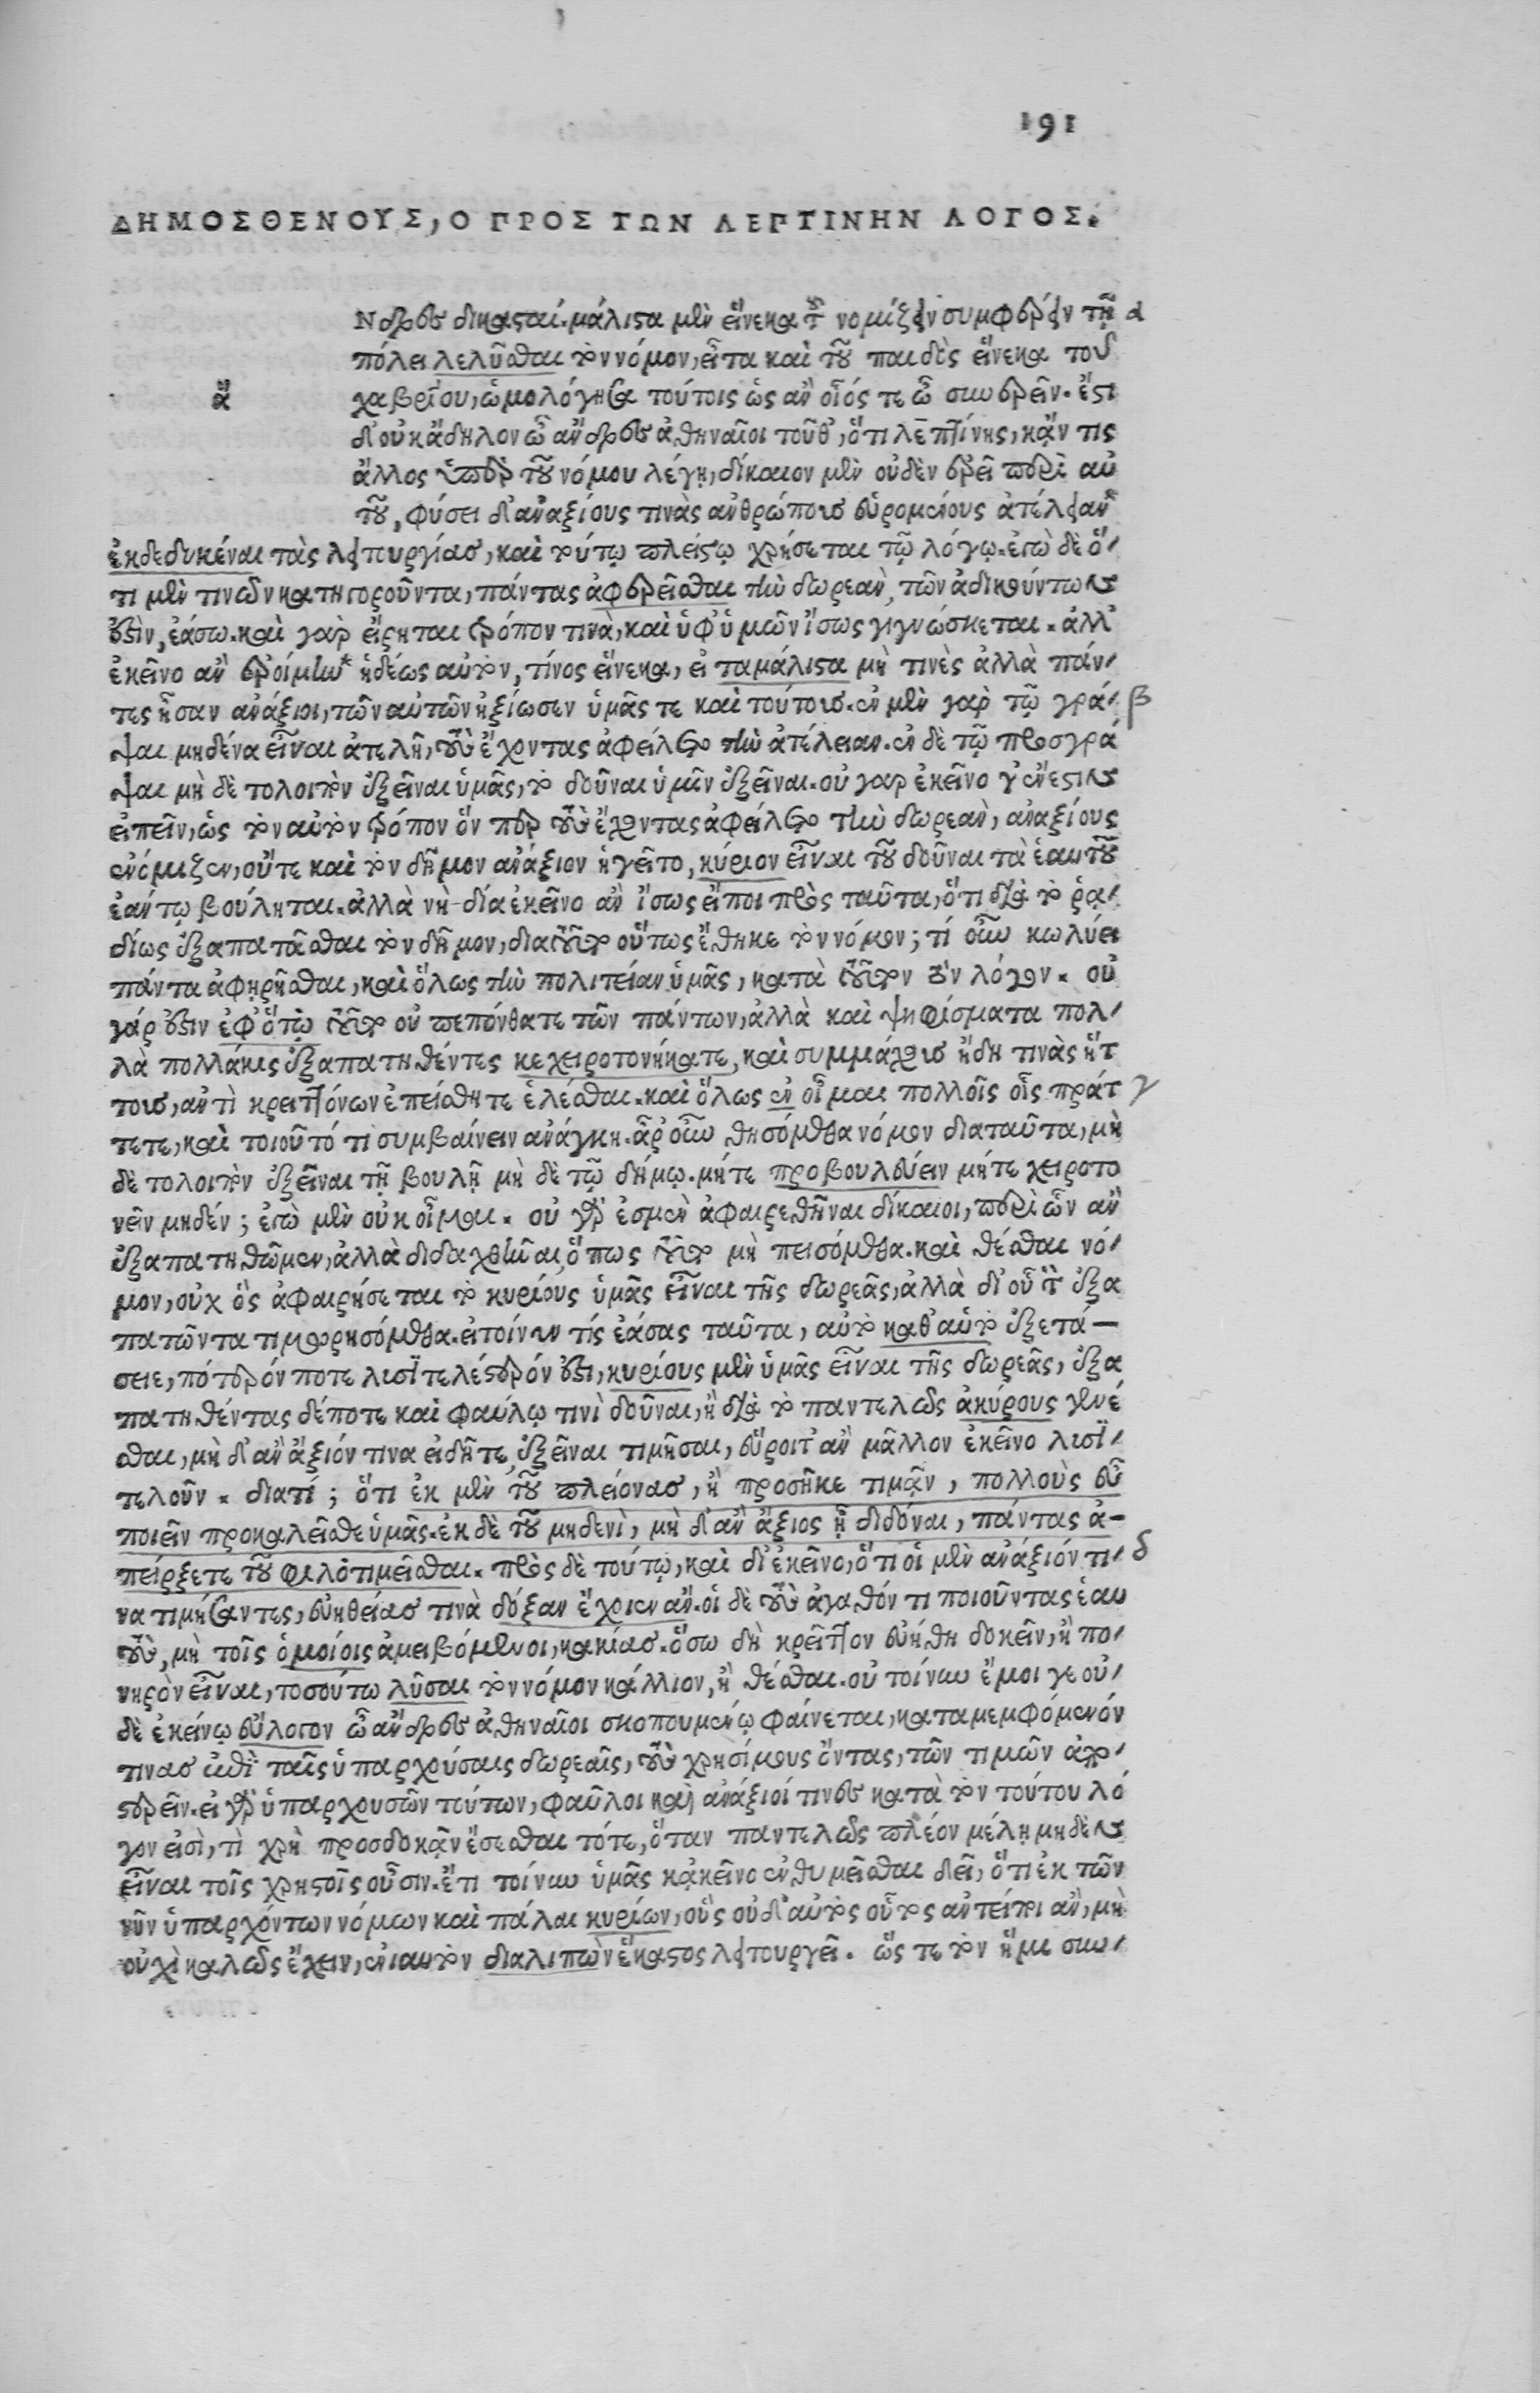 191
ΔΗΜΟΣΘΕΝΟΥΣ, Ο ΠΡΟΣ ΤΩΝ ΛΕΠΤΙΝΗΝ ΛΟΓΟΣ.
Νδρες δικασταί. μάλιστα μὲν εἵνεκα τοῦ νομίζειν συμφέρειν τῇ α
πόλει λελῦσθαι τὸν νόμον, εἶτα καὶ τοῦ παιδὸς εἵνεκα τοῦ
ἄ χαβρίου, ὡμολόγησα τούτοις ὡς ἂν οἷός τε ὦ συνερεῖν. ἔστι
δ' οὐκ ἄδηλον ὦ ἄνδρες ἀθηναῖοι τοῦθ', ὅτι λεπτίνης, κἄν τις
ἄλλος ὑπὲρ τοῦ νόμου λέγῃ, δίκαιον μὲν οὐδὲν ἐρεῖ περὶ αὐ
τοῦ, φύσει δ' ἀναξίους τινὰς ἀνθρώπους εὑρομένους ἀτέλειαν
ἐκδεδυκέναι τὰς λειτυργίας, καὶ τούτῳ πλείστῳ χρήσεται τῷ λόγῳ. ἐγὼ δὲ ὅ-
τι μὲν τινῶν κατηγοροῦντα, πάντας ἀφερεῖσθαι τὴν δωρεὰν, τῶν ἀδικούντων
ἐστὶν, ἐάσω. καὶ γὰρ εἴρηται τρόπον τινὰ, καὶ ὑφ' ὑμῶν ἴσως γιγνώσκεται. ἀλλ'
ἐκεῖνο ἂν ἐροίμην* ἡδέως αὐτὸν, τίνος εἵνεκα, εἰ ταμάλιστα μὴ τινὲς ἀλλὰ πάν-
τες ἦσαν ἀνάξιοι, τῶν αὐτῶν ἠξίωσεν ὑμᾶς τε καὶ τούτους. ἐν μὲν γὰρ τῷ γρά- β
ψαι μηδένα εἶναι ἀτελῆ, τοὺς ἔχοντας ἀφείλετο τὴν ἀτέλειαν. ἐν δὲ τῷ προσγρά
ψαι μὴ δὲ τολοιπὸν ἐξεῖναι ὑμᾶς, τὸ δοῦναι ὑμῖν ἐξεῖναι. οὐ γὰρ ἐκεῖνο γ' ἔνεστιν
εἰπεῖν, ὡς τὸν αὐτὸν τρόπον ὅν περ τοὺς ἔχοντας ἀφείλετο τὴν δωρεὰν, ἀναξίους
ἐνόμιζεν, οὔτε καὶ τὸν δῆμον ἀνάξιον ἡγεῖτο, κύριον εἶναι τοῦ δοῦναι τὰ ἑαυτοῦ
ἐάν τῳ βούληται. ἀλλὰ νὴ δία ἐκεῖνο ἂν ἴσως εἴποι πρὸς ταῦτα, ὅτι διὰ τὸ ῥᾳ-
δίως ἐξαπατᾶσθαι τὸν δῆμον, διατοῦτο οὕτως ἔθηκε τὸν νόμον; τί οὖν κωλύει
πάντα ἀφῃρῆσθαι, καὶ ὅλως τὴν πολιτείαν ὑμᾶς, κατὰ τοῦτον τὸν λόγον. οὐ
γάρ ἐστιν ἐφ' ὅτῳ τοῦτο οὐ πεπόνθατε τῶν πάντων, ἀλλὰ καὶ ψηφίσματα πολ-
λὰ πολλάκις ἐξαπατηθέντες κεχειροτονήκατε, καὶ συμμάχους ἤδη τινὰς ἥτ
τους, ἀντὶ κρειττόνων ἐπείσθητε ἑλέσθαι. καὶ ὅλως ἐν οἶμαι πολλοῖς οἷς πράτ γ
τετε, καὶ τοιοῦτό τι συμβαίνειν ἀνάγκη. ἆρ' οὖν θησόμεθα νόμον διαταῦτα, μὴ
δὲ τολοιπὸν ἐξεῖναι τῇ βουλῇ μὴ δὲ τῷ δήμῳ. μήτε προβουλεύειν μήτε χειροτο
νεῖν μηδέν; ἐγὼ μὲν οὐκ οἶμαι. οὐ γάρ ἐσμεν ἀφαιρεθῆναι δίκαιοι, περὶ ὧν ἂν
ἐξαπατηθῶμεν, ἀλλὰ διδαχθῆναι ὅπως τοῦτο μὴ πεισόμεθα. καὶ θέσθαι νό-
μον, οὐχ ὃς ἀφαιρήσεται τὸ κυρίους ὑμᾶς εἶναι τῆς δωρεᾶς, ἀλλὰ δι' οὗ τὸν ἐξα
πατῶντα τιμωρησόμεθα. εἰ τοίνυν τίς ἐάσας ταῦτα, αὐτὸ καθ' αὑτὸ ἐξετά-
σειε, πότερόν ποτε λυσιτελέστερόν ἐστι, κυρίους μὲν ὑμᾶς εἶναι τῆς δωρεᾶς, ἐξα
πατηθέντας δέποτε καὶ φαύλῳ τινὶ δοῦναι, ἢ διὰ τὸ παντελῶς ἀκύρους γενέ
σθαι, μὴ δ' ἂν ἄξιόν τινα εἰδῆτε, ἐξεῖναι τιμῆσαι, εὕροιτ' ἂν μᾶλλον ἐκεῖνο λυσι-
τελοῦν. διατί; ὅτι ἐκ μὲν τοῦ πλείονας, ἢ προσῆκε τιμᾷν, πολλοὺς εὖ
ποιεῖν προκαλεῖσθε ὑμᾶς. ἐκ δὲ τοῦ μηδενὶ, μὴ δ' ἂν ἄξιος ᾖ διδόναι, πάντας ἀ-
πείρξετε τοῦ φιλοτιμεῖσθαι. πρὸς δὲ τούτῳ, καὶ δι' ἐκεῖνο, ὅτι οἱ μὲν ἀνάξιόν τι- δ
να τιμήσαντες, εὐηθείας τινὰ δόξαν ἔχοιεν ἄν. οἱ δὲ τοὺς ἀγαθόν τι ποιοῦντας ἑαυ
τοὺς, μὴ τοῖς ὁμοίοις ἀμειβόμενοι, κακίας. ὅσω δὴ κρεῖττον εὐήθη δοκεῖν, ἢ πο-
νηρὸν εἶναι, τοσούτω λῦσαι τὸν νόμον κάλλιον, ἢ θέσθαι. οὐ τοίνυν ἔμοιγε οὐ-
δὲ ἐκείνῳ εὔλογον ὦ ἄνδρες ἀθηναῖοι σκοπουμένῳ φαίνεται, καταμεμφόμενόν
τινας ἐπὶ ταῖς ὑπαρχούσαις δωρεαῖς, τοὺς χρησίμους ὄντας, τῶν τιμῶν ἀπο-
στερεῖν. εἰ γὰρ ὑπαρχουσῶν τούτων, φαῦλοι καὶ ἀνάξιοί τινες κατὰ τὸν τούτου λό
γον εἰσὶ, τὶ χρὴ προσδοκᾷν ἔσεσθαι τότε, ὅταν παντελῶς πλέον μέλῃ μηδὲν
εἶναι τοῖς χρηστοῖς οὖσιν. ἔτι τοίνυν ὑμᾶς κᾀκεῖνο ἐνθυμεῖσθαι δεῖ, ὅτι ἐκ τῶν
νῦν ὑπαρχόντων νόμων καὶ πάλαι κυρίων, οὓς οὐδ' αὐτὸς οὗτος ἀντείποι ἂν, μὴ
οὐχὶ καλῶς ἔχειν, ἐνιαυτὸν διαλιπὼν ἕκαστος λειτουργεῖ. ὥς τε τὸν ἥμισυν-